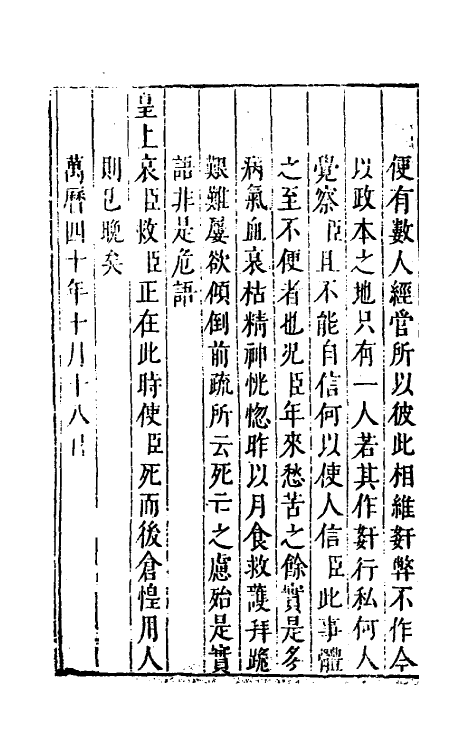 便有數人經營所以彼此相維奸弊不作今
以政本之地只有一人若其作奸行私何人
覺察臣且不能自信何以使人信臣此事體
之至不便者也況臣年來愁苦之餘實是多
病氣血衰枯精神恍惚昨以月食救護拜跪
艱難屢欲傾倒前疏所云死亡之慮殆是實
語非是危語
皇上哀臣救臣正在此時使臣死而後倉惶用人
則已晚矣
萬曆四十年十月十八日